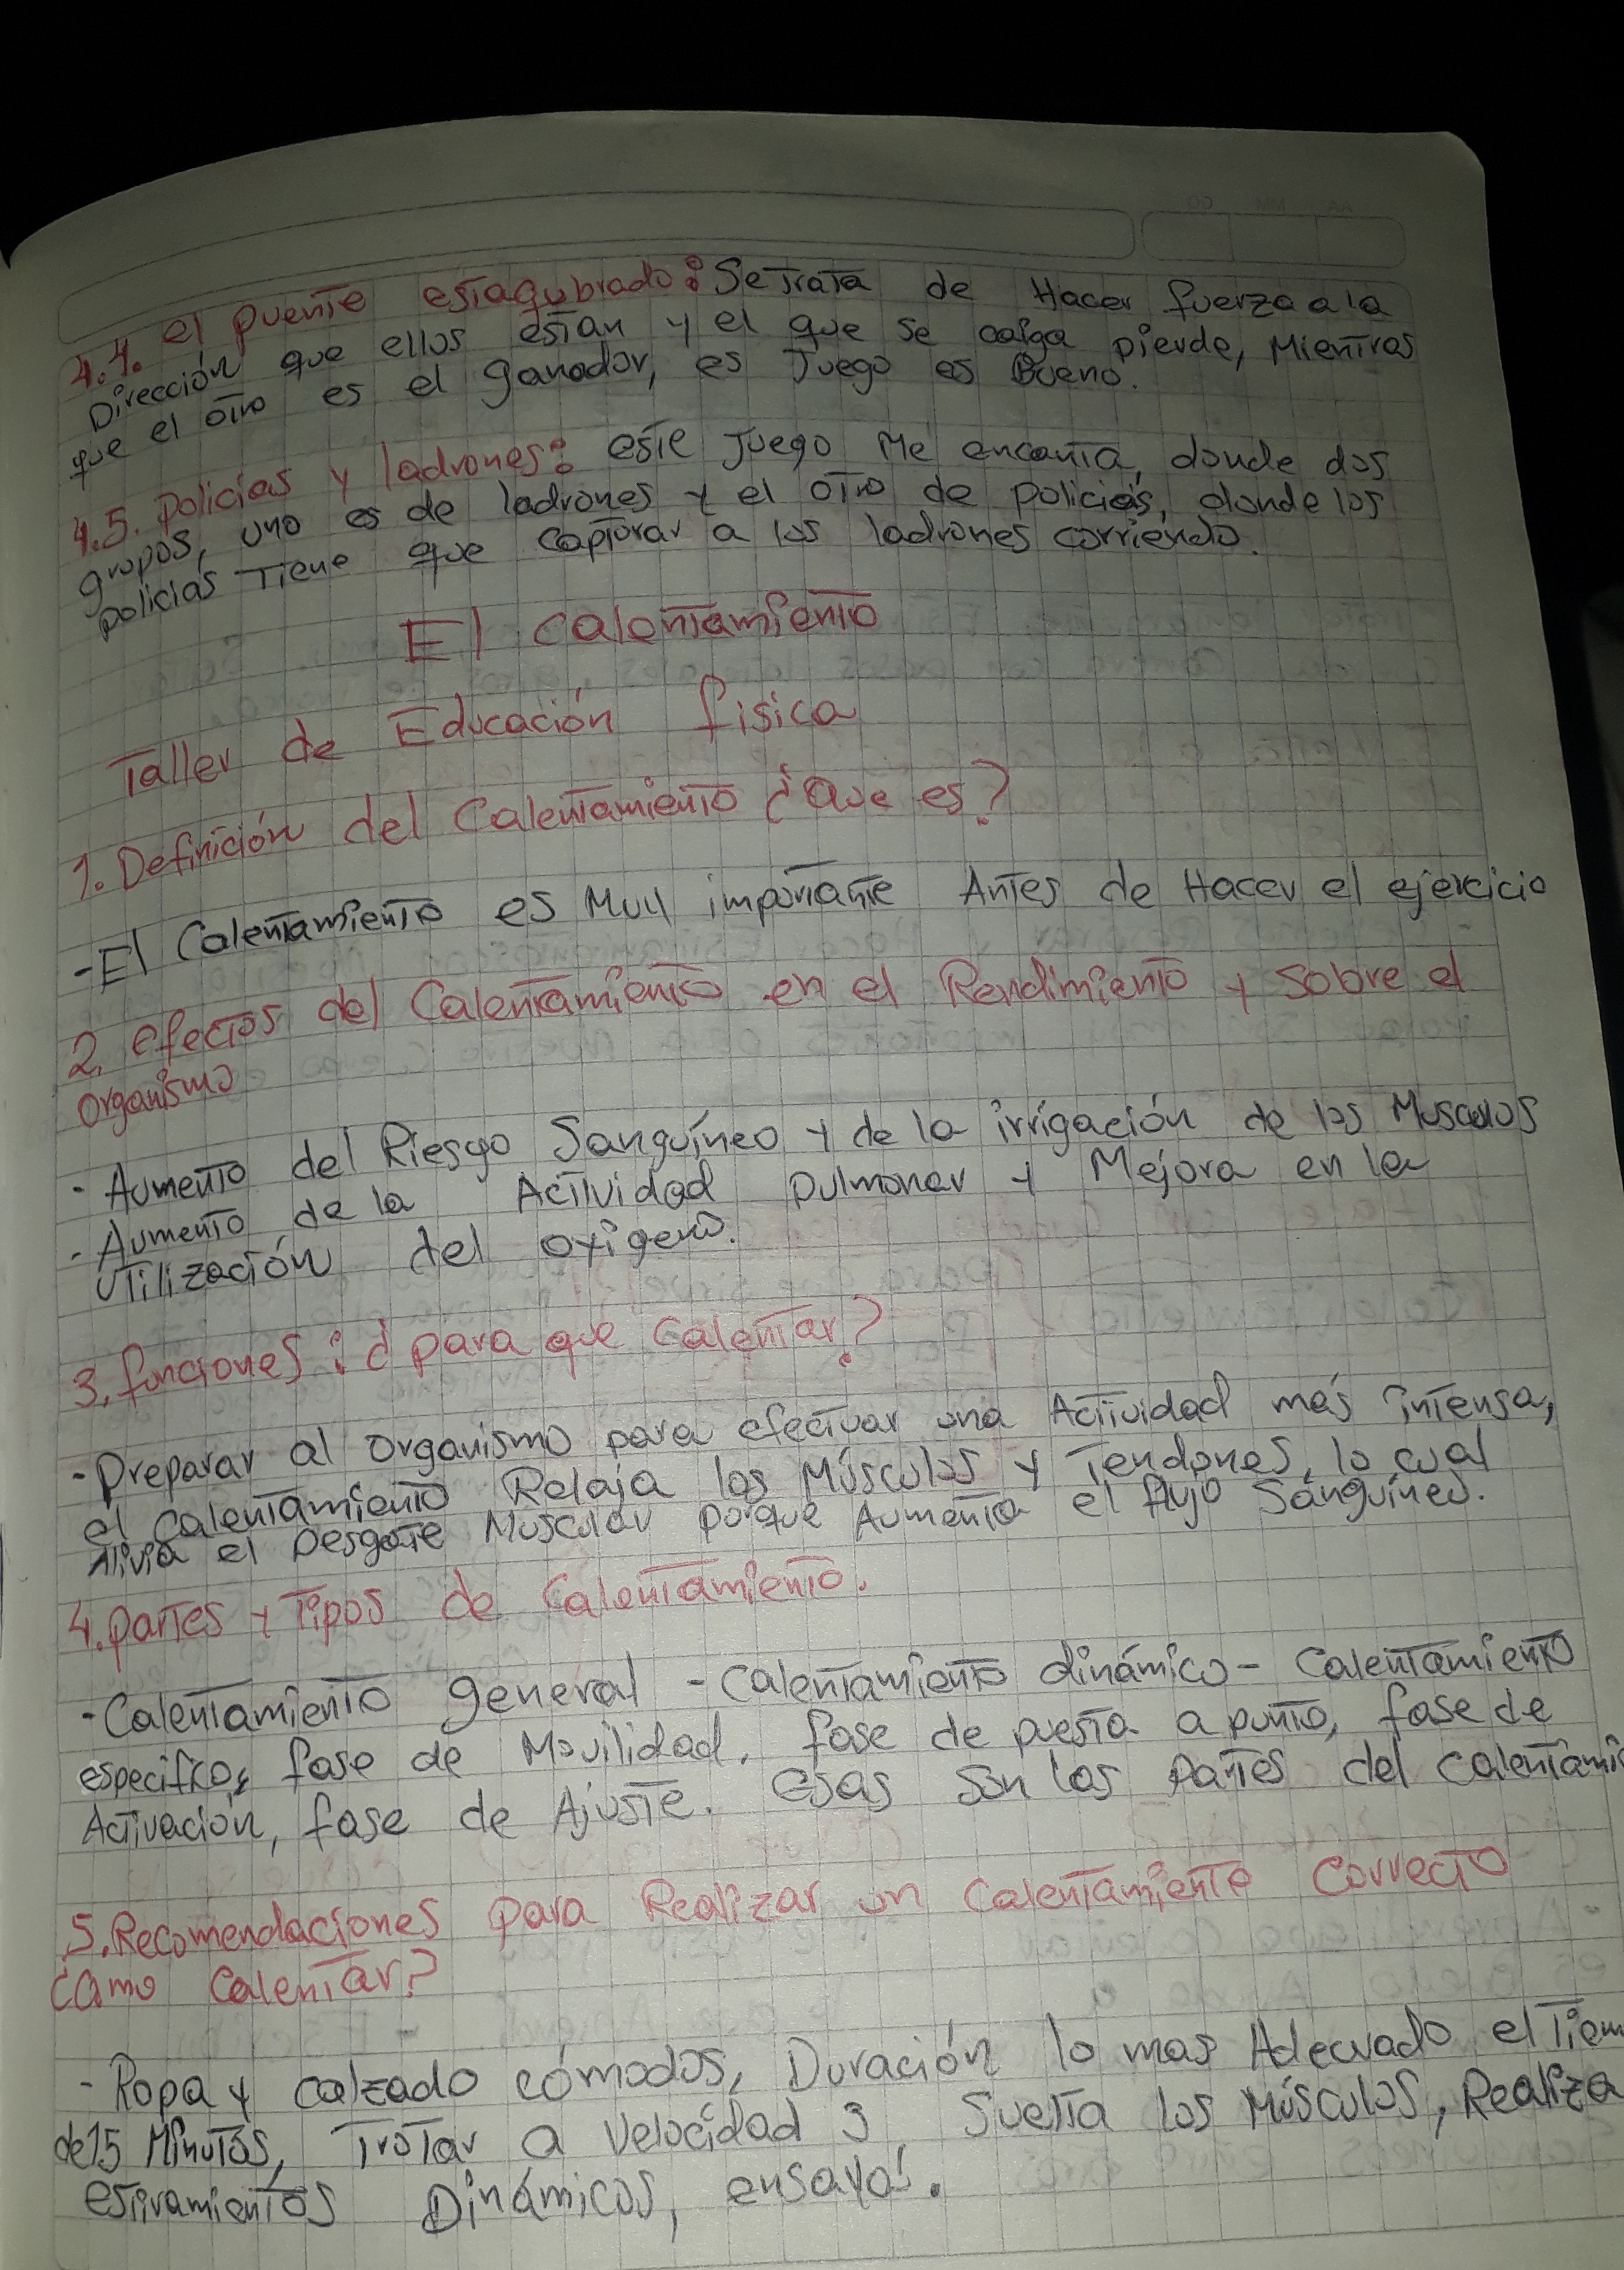 4.4. el puente estaqubrado: Se Trata de Hacer fuerza a la
Dirección que ellos estan y el que se caiga pierde, Mientras
que el otro es el ganador, es Juego es Bueno.
4.5. policias y ladrones: este Juego Me encanta, donde dos
grupos, uno es de ladrones y el otro de policias, donde los
policias Tiene que capturar a los ladrones corriendo.
El calentamiento
Taller de Educación fisica
1. Definición del Calentamiento ¿Que es?
- El Calentamiento es Muy importante Antes de Hacer el ejercicio
2. efectos del Calentamiento en el Rendimiento y sobre el
organismo
- Aumento del Riesgo Sanguíneo y de la irrigación de los Musculos
- Aumento de la Actividad pulmonar y Mejora en la
utilización del oxigeno.
3. funciones: ¿para que calentar?
- Preparar al organismo para efectuar una Actividad más intensa,
el calentamiento Relaja los Músculos y Tendones, lo cual
Alivia el Desgate Muscular porque Aumenta el flujo Sánguineo.
4. partes y Tipos de Calentamiento.
- Calentamiento general - Calentamiento dinámico - Calentamiento
especifico, fase de Movilidad, fase de puesta a punto, fase de
Activación, fase de Ajuste. esas son las partes del calentami
5. Recomendaciones para Realizar un Calentamiente correcto
¿Como Calentar?
- Ropa y calzado cómodos, Duración lo mas Adecuado el Tiem
de 15 Minutos, Trotar a velocidad 3, Suelta los Músculos, Realiza
estiramientos Dinámicos, ensaya.